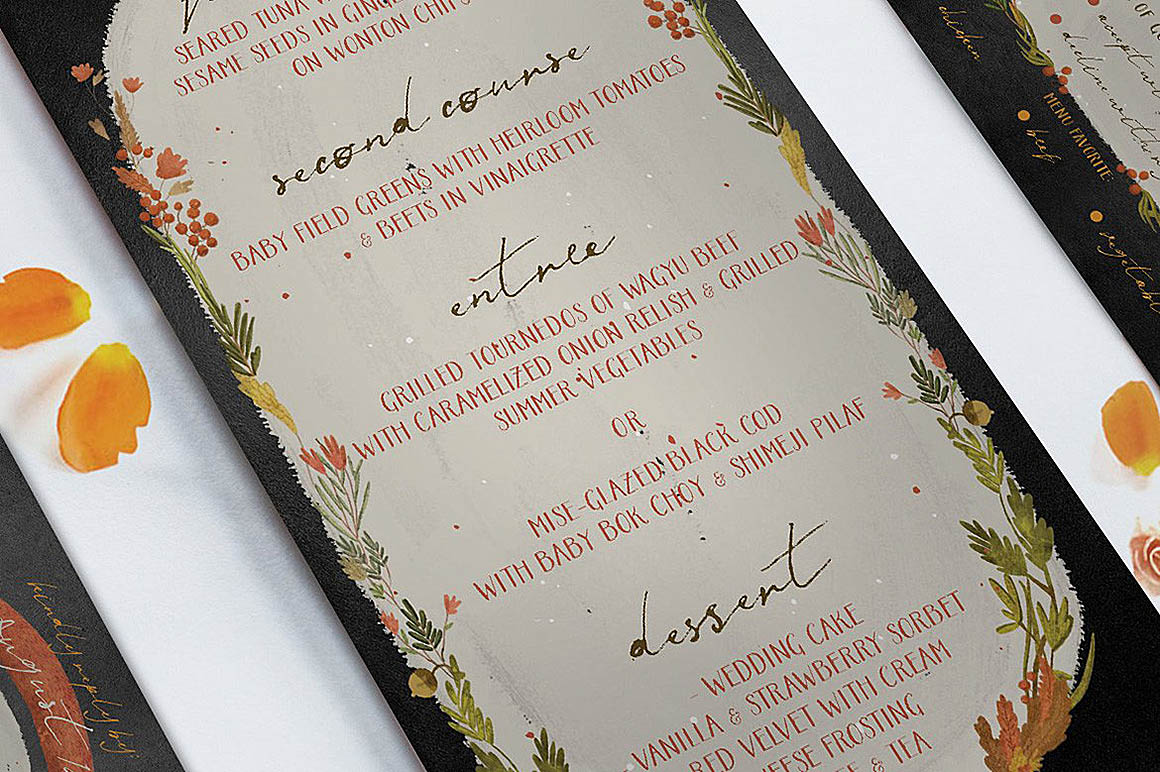 SEARED TUNA
SESAME SEEDS IN
ON WONTON CHIPS
second course
BABY FIELD GREENS WITH HEIRLOOM TOMATOES
& BEETS IN VINAIGRETTE
entree
GRILLED TOURNEDOS OF WAGYU BEEF
WITH CARAMELIZED ONION RELISH & GRILLED
SUMMER VEGETABLES
OR
MISE-GLAZED BLACK COD
WITH BABY BOK CHOY & SHIMEJI PILAF
dessert
- WEDDING CAKE
VANILLA & STRAWBERRY SORBET
RED VELVET WITH CREAM
CHEESE FROSTING
& TEA
kindly reply by:
August
OF
accept
decline
MENU FAVORITE:
chicken
beef
vegetabl